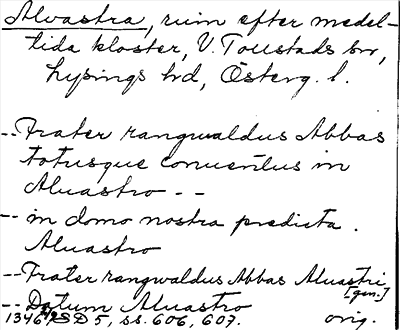 Alvastra, ruin efter medel-
tida kloster, V. Tollstads sn,
Lysings hd, Österg. l.
-- Frater rangwaldus Abbas
totusque conuentus in
Aluastro --
-- in domo nostra predicta.
Aluastro
-- Frater rangwaldus Abbas Aluastri
[gen.]
-- Datum Aluastro
1346 SD 5, ss. 606, 607. orig.